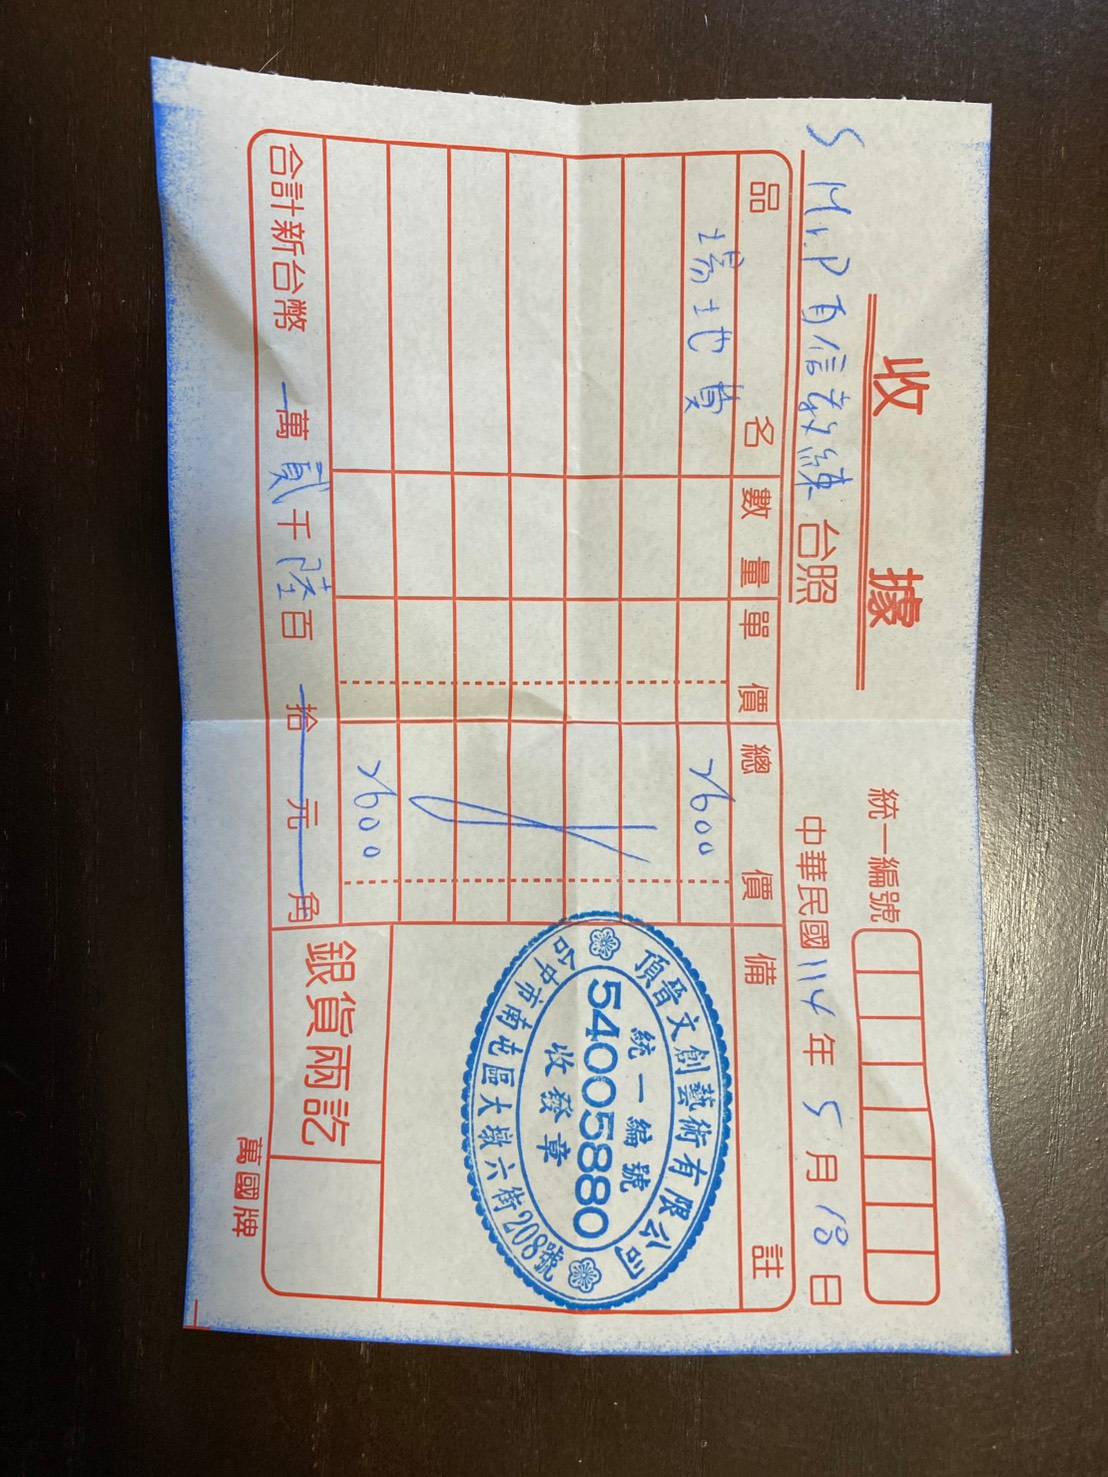 收據
統一編號
S Mr.P 自信教練 台照
中華民國114年5月18日
品名 數量 單價 總價 備註
場地費 2600
2600
合計新台幣 萬貳千陸百拾元角
銀貨兩訖
頂晉文創藝術有限公司
統一編號
54005880
收發章
台中市南屯區大墩六街208號
萬國牌